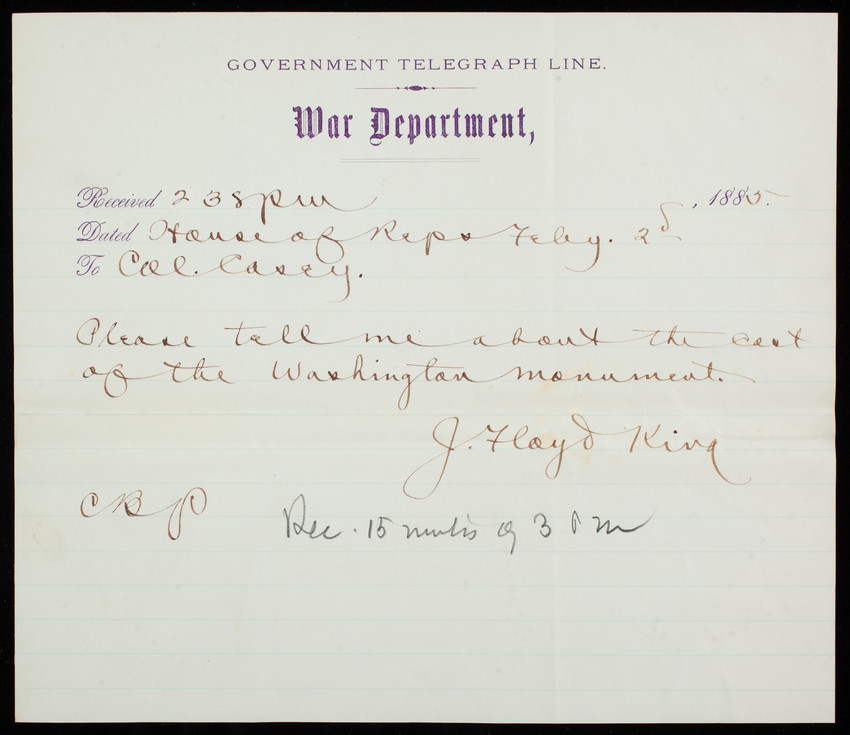 GOVERNMENT TELEGRAPH LINE.
War Department,
Received 2 38 pm , 1885.
Dated House of Reps Feby. 2d
To Col. Casey.
Please tell me about the cost
of the Washington monument.
J. Floyd King
CBP
Rec. 15 mnts of 3 P m